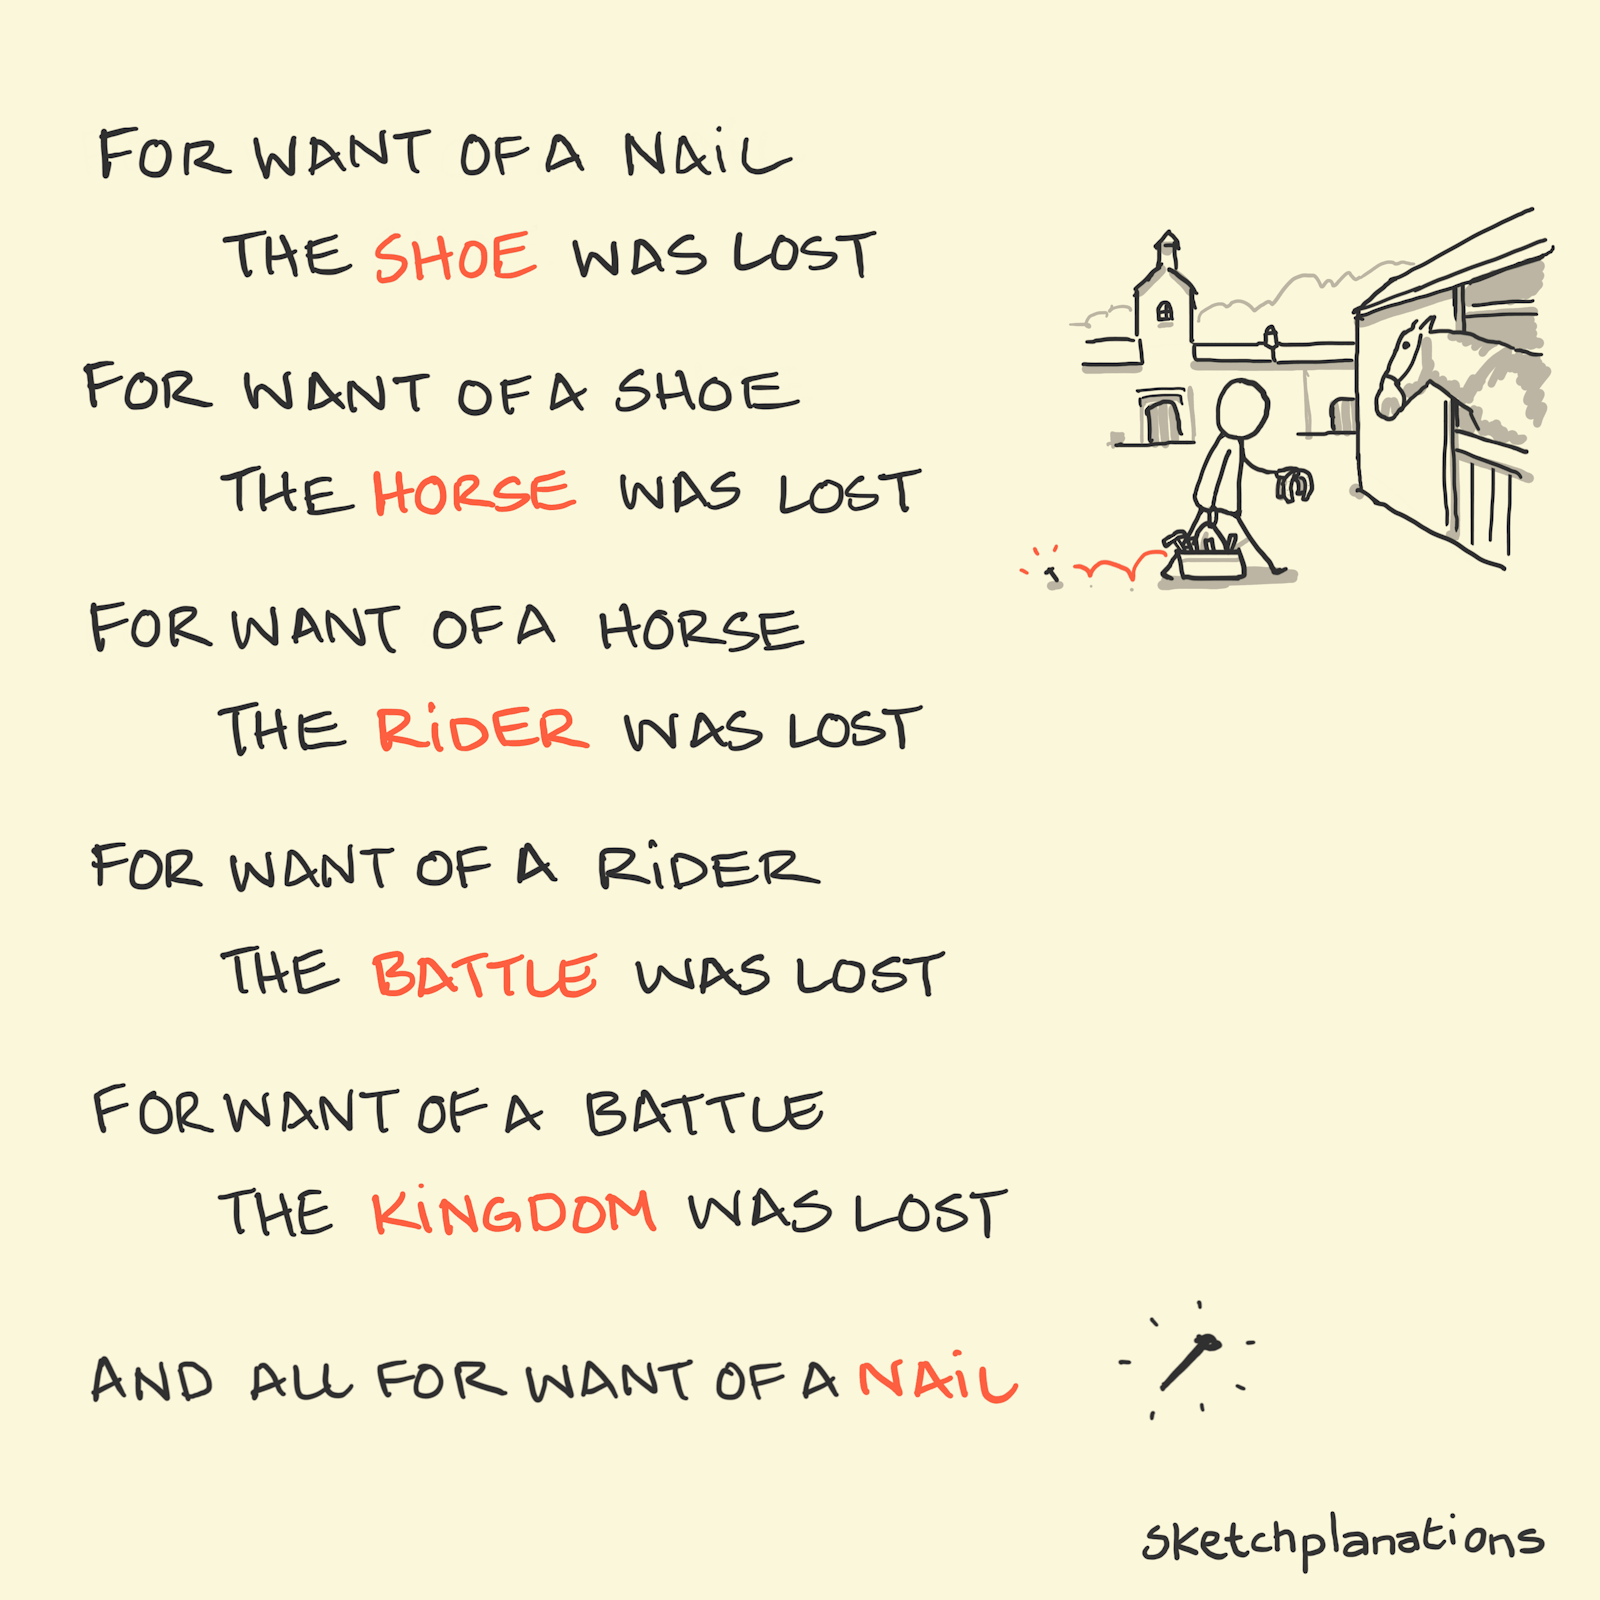 FOR WANT OF A NAiL
THE SHOE WAS LOST
FOR WANT OF A SHOE
THE HORSE WAS LOST
FOR WANT OF A HORSE
THE RiDER WAS LOST
FOR WANT OF A RiDER
THE BATTLE WAS LOST
FOR WANT OF A BATTLE
THE KiNGDOM WAS LOST
AND ALL FOR WANT OF A NAiL
sketchplanations